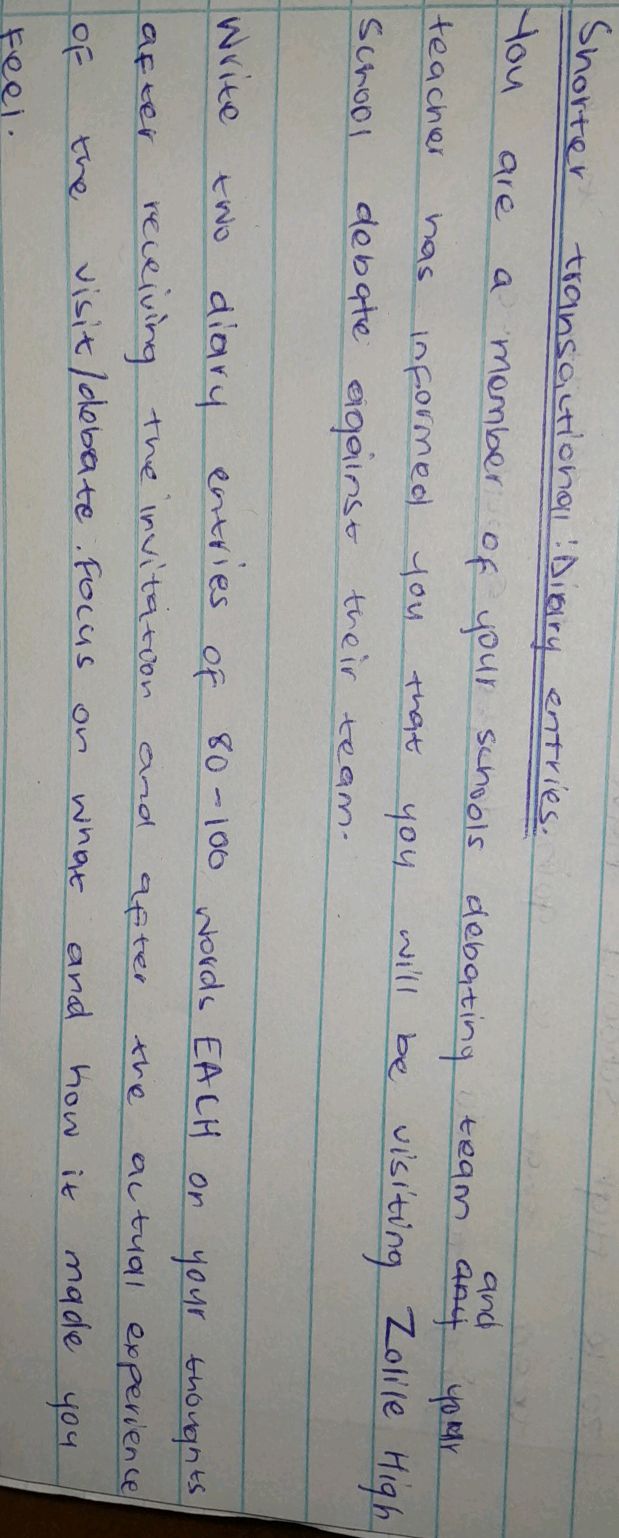 Shorter transactional: Diary entries.
You are a member of your schools debating team and your
teacher has informed you that you will be visiting Zolile High
School debate against their team.
Write two diary entries of 80-100 words EACH on your thoughts
after receiving the invitation and after the actual experience
of the visit/debate. Focus on what and how it made you
feel.